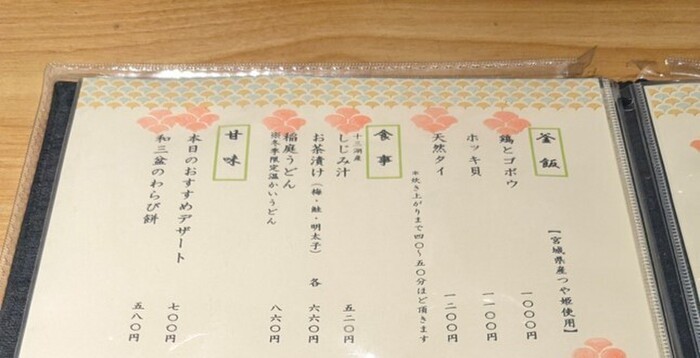 釜飯
【宮城県産つや姫使用】
鶏とゴボウ 一〇〇〇円
ホッキ貝 一一〇〇円
天然タイ 一二〇〇円
＊炊き上がりまで四〇～五〇分ほど頂きます
食事
十三湖産
しじみ汁 五二〇円
お茶漬け（梅・鮭・明太子） 各 六六〇円
稲庭うどん 八六〇円
※冬季限定温かいうどん
甘味
本日のおすすめデザート 七〇〇円
和三盆のわらび餅 五八〇円